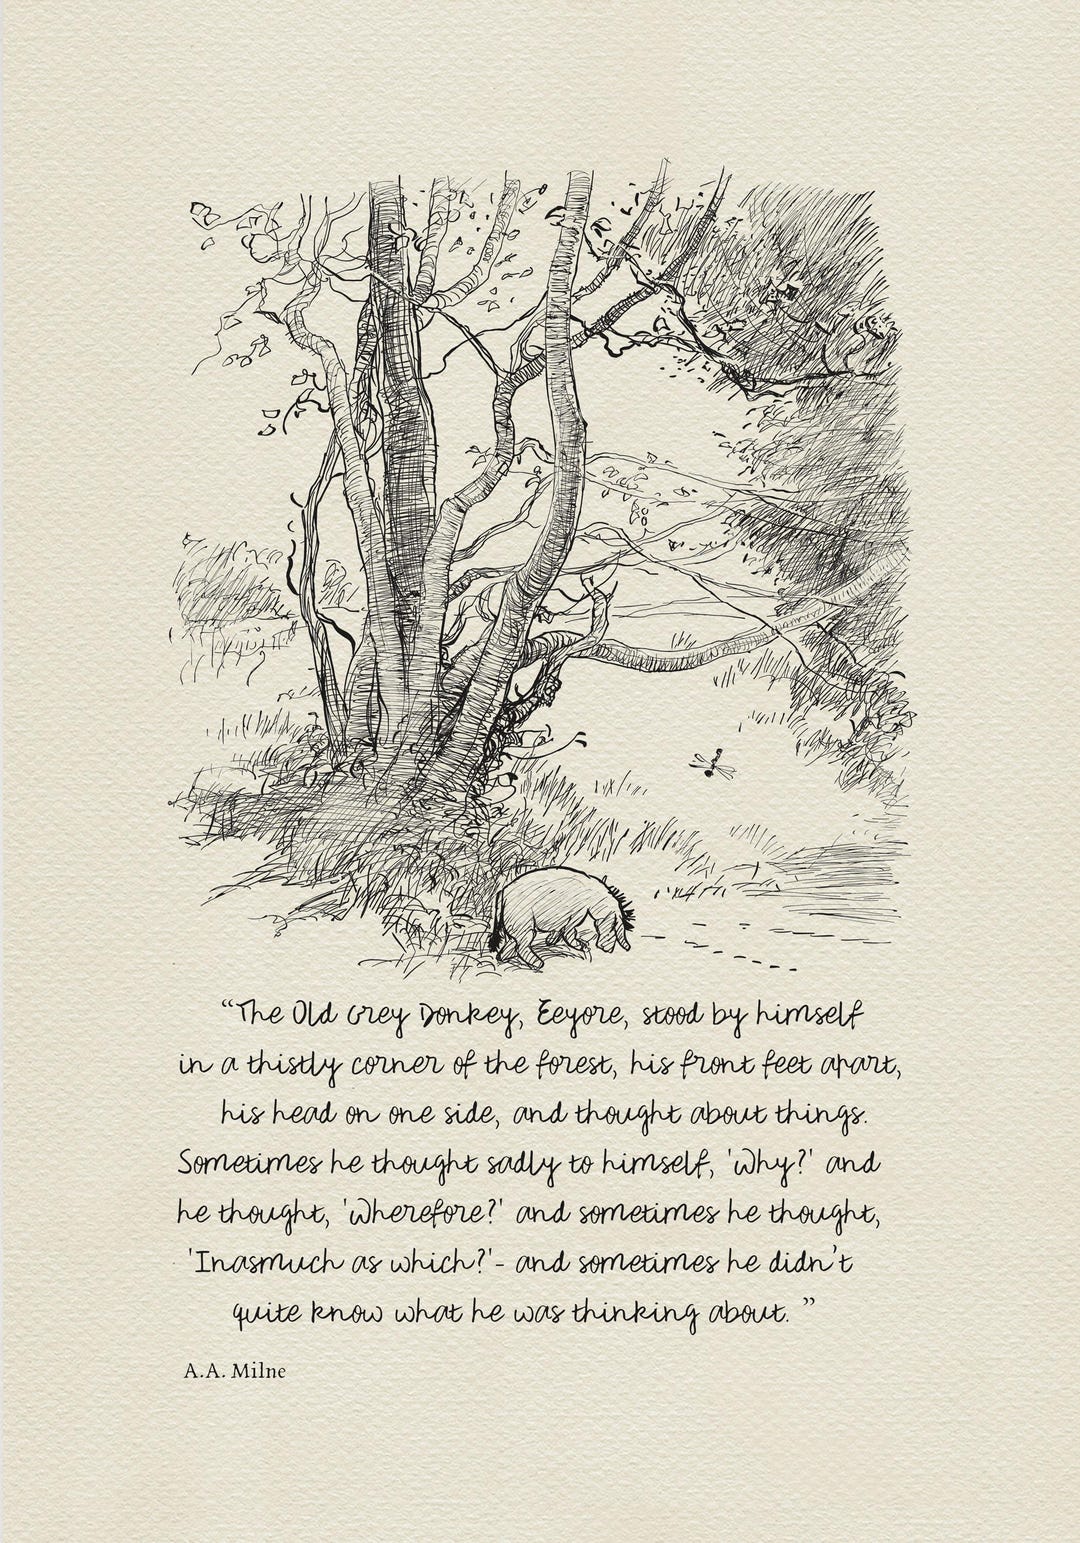 “The Old Grey Donkey, Eeyore, stood by himself
in a thistly corner of the forest, his front feet apart,
his head on one side, and thought about things.
Sometimes he thought sadly to himself, 'Why?' and
he thought, 'Wherefore?' and sometimes he thought,
'Inasmuch as which?'- and sometimes he didn’t
quite know what he was thinking about. ”
A.A. Milne